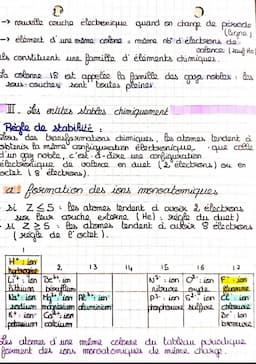 → nouvelle couche électronique quand on change de période
(ligne)
→ élément d'une même colonne = même nb d'électrons de
valence (sauf He)
Ils constituent une famille d'éléments chimiques.
La colonne 18 est appelée la famille des gaz nobles : les
sous-couches sont toutes pleines.
III. Les entités stables chimiquement
Règle de stabilité :
Lors des transformations chimiques, les atomes tendent à
obtenir la même configuration électronique que celle
d'un gaz noble, c'est-à-dire une configuration
électronique de valence en duet (2 électrons) ou en
octet (8 électrons).
a. formation des ions monoatomiques
- si Z ≤ 5 : les atomes tendent à avoir 2 électrons
sur leur couche externe (He) (règle du duet)
- si Z ≥ 5 : les atomes tendent à avoir 8 électrons
(règle de l'octet).
1
H⁺ : ion
hydrogène
2 13 14 15 16 17
Li⁺ : ion Be²⁺ : ion N³⁻ : ion O²⁻ : ion F⁻ : ion
lithium béryllium nitrure oxyde fluorure
Na⁺ : ion Mg²⁺ : ion Al³⁺ : ion P³⁻ : ion S²⁻ : ion Cl⁻ : ion
sodium magnésium aluminium phosphure sulfure chlorure
K⁺ : ion Ca²⁺ : ion Br⁻ : ion
potassium calcium bromure
Les atomes d'une même colonne du tableau périodique
forment des ions monoatomiques de même charge.